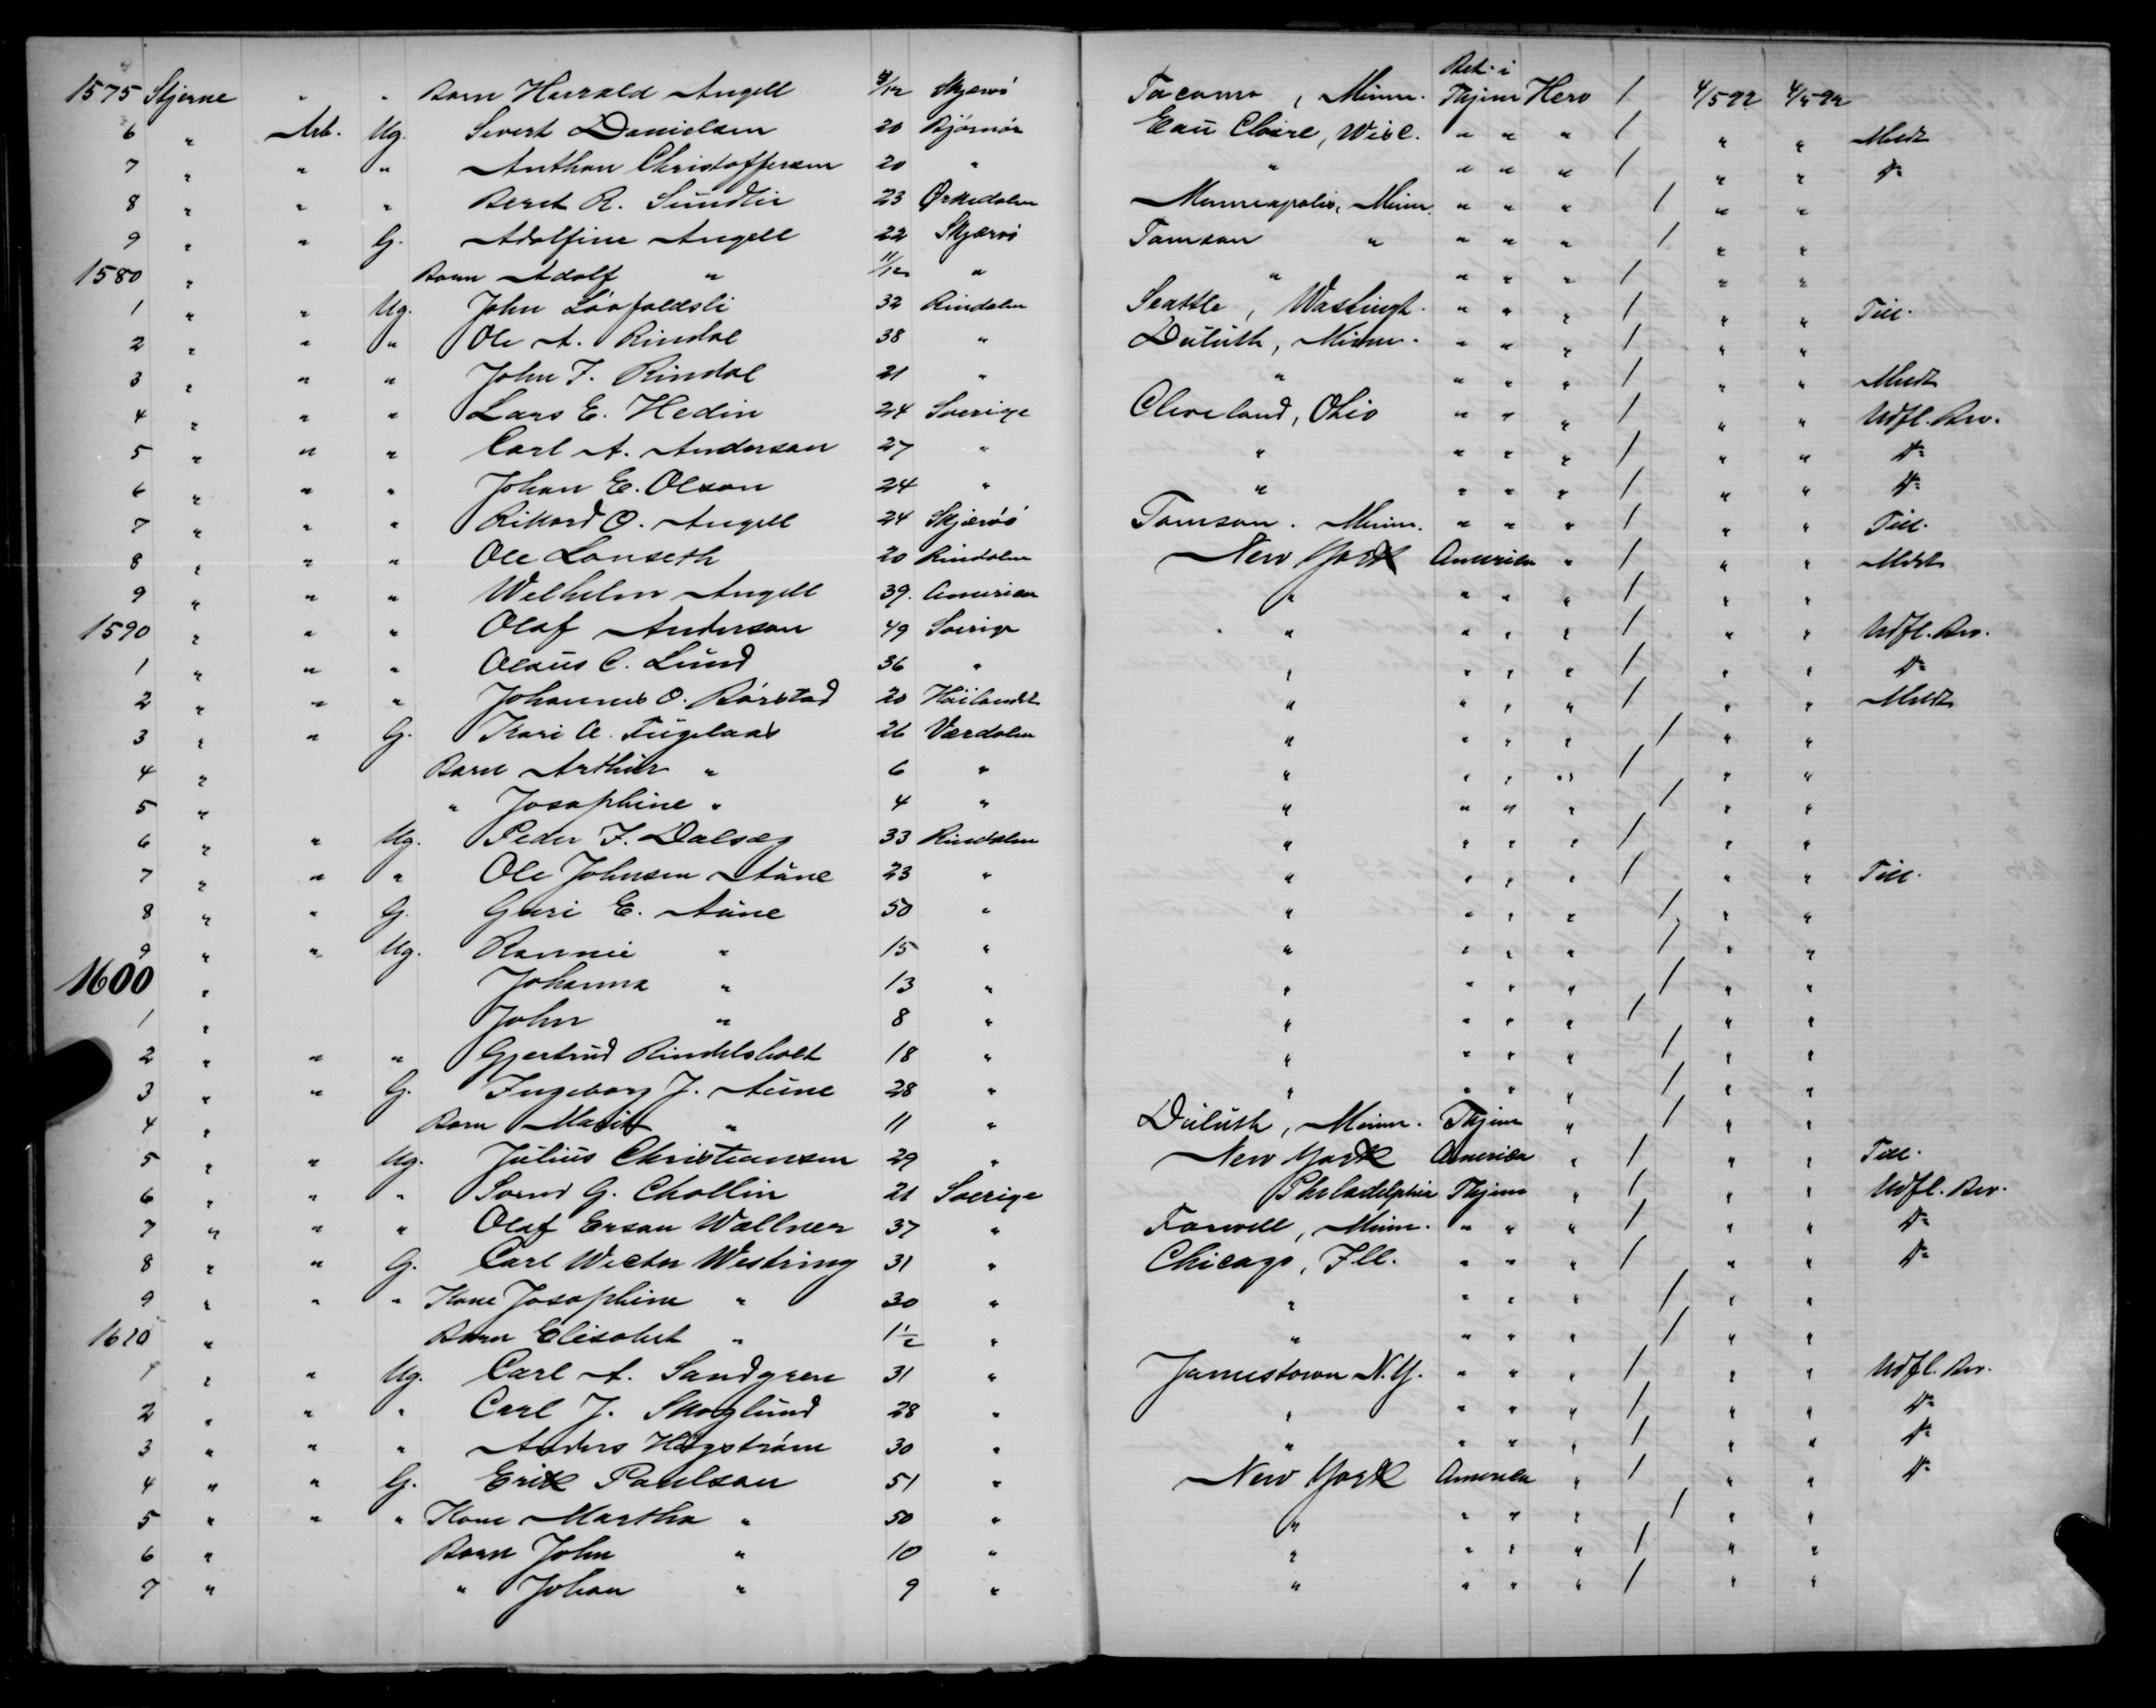 Bet. i
1575 Stjerne " " Barn Harald Angell /12 Skjervö Tacoma, Minn. Thjem Hero / 4/5 92 4/5 92
6 " Arb. Ug. Sivert Danielsen 20 Bjørnør Eau Claire, Wisc. " " " / " " Mildt
7 " " " Anthon Christoffersen 20 " " " " " / " " do
8 " " " Beret R. Sundli 23 Ørkedalen Minneapolis, Minn. " " " / " "
9 " " G. Adolfine Angell 22 Skjervö Tamson " " " " / " "
1580 " Barn Adolf " 11/12 " " " " " / " "
1 " " Ug. John Løvfaldsli 32 Rindalen Seattle, Washingt. " " " / " " Till.
2 " " " Ole A. Rindal 38 " Duluth, Minn. " " " / " "
3 " " " John F. Rindal 21 " " " " " / " " Mildt
4 " " " Lars E. Hedin 24 Sverige Cleveland, Ohio " " " / " " Udfl. Bev.
5 " " " Carl A. Anderson 27 " " " " " / " " do
6 " " " Johan E. Olson 24 " " " " " / " " do
7 " " " Rikard O. Angell 24 Skjervö Tamson. Minn. " " " / " " Till.
8 " " " Ole Lanseth 20 Rindalen New York America " / " " Mildt
9 " " " Welhelm Angell 39. America " " " " / " "
1590 " " " Olaf Anderson 49 Sverige " " " " / " " Udfl. Bev.
1 " " " Olaus C. Lund 36 " " " " " / " " do
2 " " " Johannes O. Børstad 20 Höilandet " " " " / " " Mildt
3 " " G. Kari A. Fuglaas 26 Værdalen " " " " / " "
4 " Barn Arthur " 6 " " " " " / " "
5 " " Josephine " 4 " " " " " / " "
6 " " Ug. Peder F. Dalsæg 33 Rindalen " " " " / " "
7 " " " Ole Johnsen Aune 23 " " " " " / " " Till.
8 " " G. Guri E. Aune 50 " " " " " / " "
9 " " Ug. Rannei " 15 " " " " " / " "
1600 " Johanna " 13 " " " " " / " "
1 " John " 8 " " " " " / " "
2 " " " Gjertrud Rindelsholt 18 " " " " " / " "
3 " " G. Ingeborg J. Aune 28 " " " " " / " "
4 " Barn Marit " 11 " Duluth, Minn. Thjem " / " "
5 " " Ug. Julius Christiansen 29 " New York America " / " " Till.
6 " " " G. Chollin 21 Sverige Philadelphia Thjem " / " " Udfl. Bev.
7 " " " Olaf Erson Wallner 37 " Farwell, Minn. " " " / " " do
8 " " G. Carl Wictor Westring 31 " Chicago, Ill. " " " / " " do
9 " " " Kone Josephine " 30 " " " " " / " "
1610 " Barn Elisabet " 1½ " " " " " / " "
1 " " Ug. Carl A. Sandgren 31 " Jamestown N.Y. " " " / " " Udfl. Bev.
2 " " " Carl J. Skoglund 28 " " " " " / " " do
3 " " " Anders Högström 30 " " " " " / " " do
4 " " G. Erik Paulson 51 " New York America " / " " do
5 " " " Kone Martha " 50 " " " " " / " "
6 " Barn John " 10 " " " " " / " "
7 " " Johan " 9 " " " " " / " "